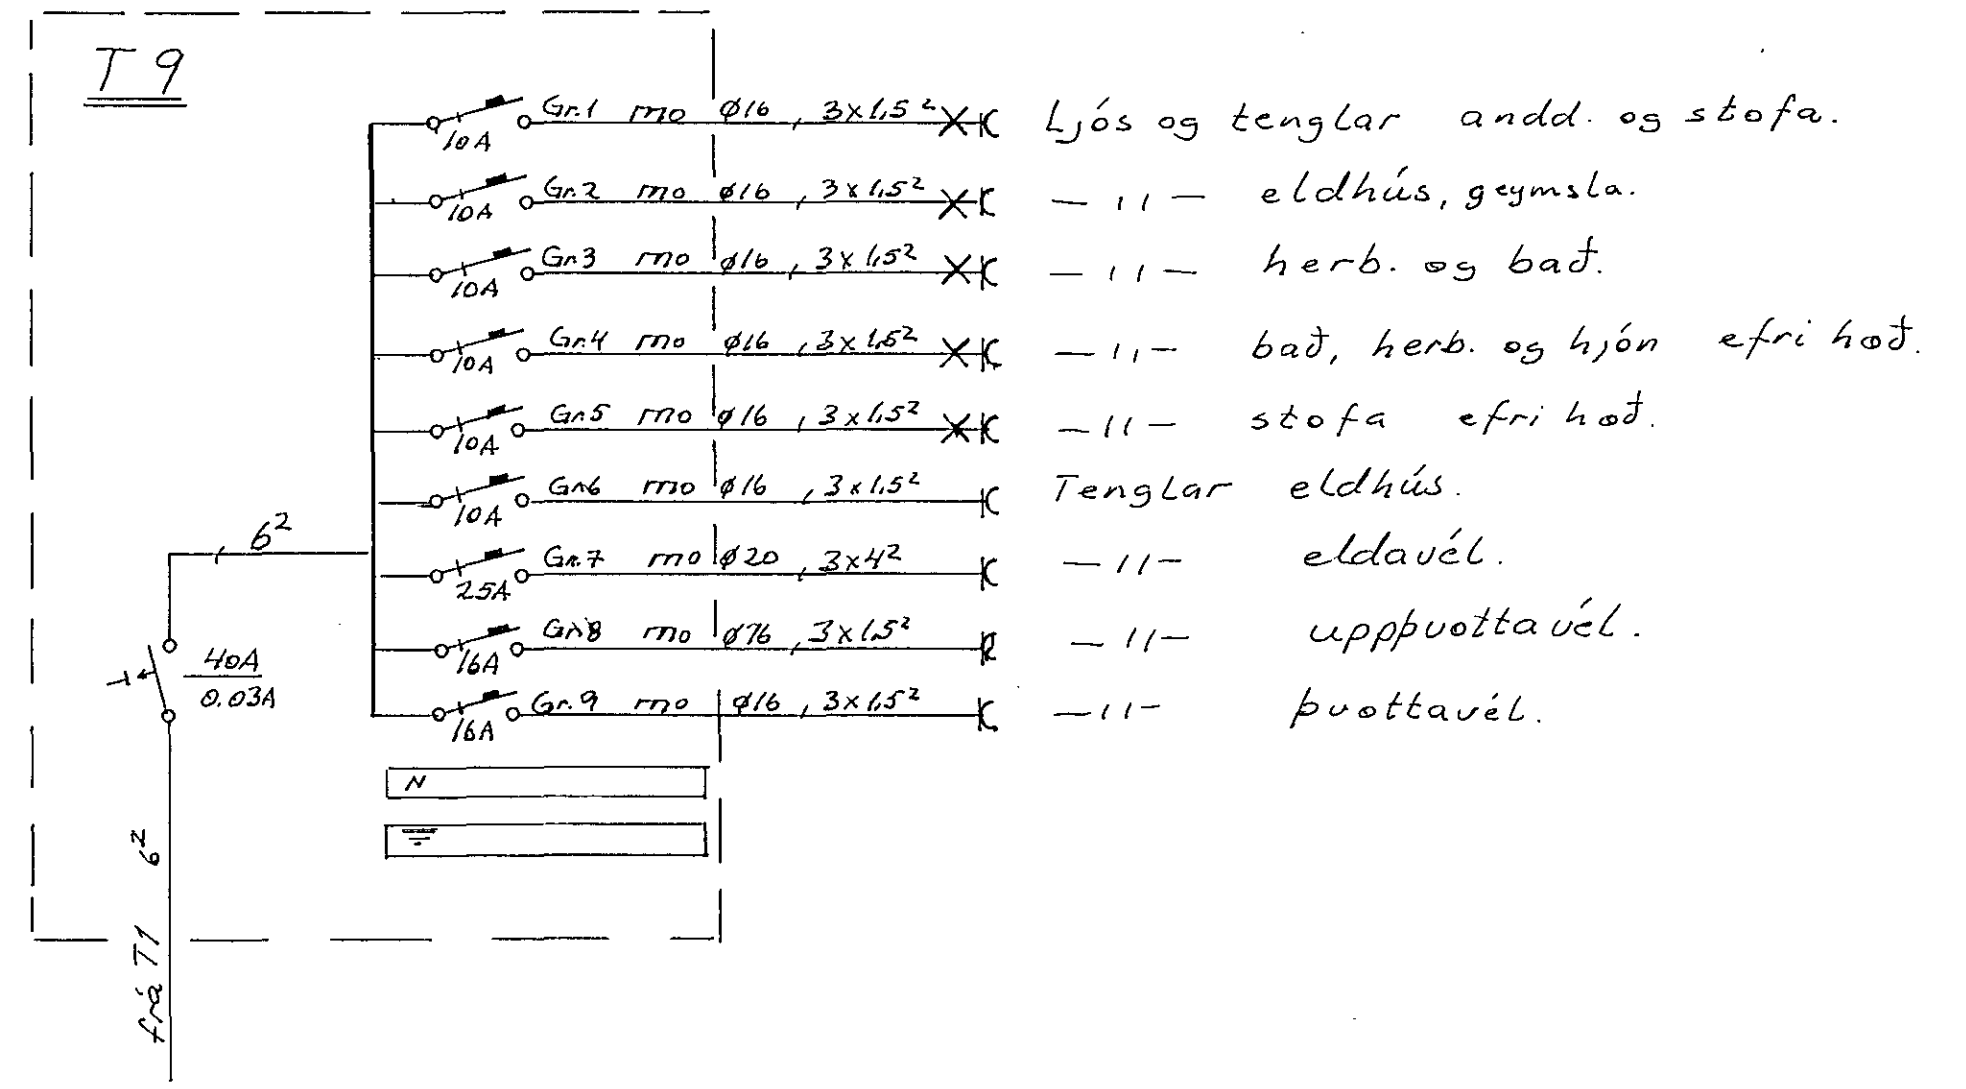 T 9
Gr.1 mo ø16, 3x1,5² Ljós og tenglar andd. og stofa.
10A
Gr.2 mo ø16, 3x1,5² — 〃 — eldhús, geymsla.
10A
Gr.3 mo ø16, 3x1,5² — 〃 — herb. og bað.
10A
Gr.4 mo ø16, 3x1,5² — 〃 — bað, herb. og hjón efri hæð.
10A
Gr.5 mo ø16, 3x1,5² — 〃 — stofa efri hæð.
10A
Gr.6 mo ø16, 3x1,5² Tenglar eldhús.
10A
6²
Gr.7 mo ø20, 3x4² — 〃 — eldavél.
25A
Gr.8 mo ø16, 3x1,5² — 〃 — uppþvottavél.
16A
40A
0.03A
Gr.9 mo ø16, 3x1,5² — 〃 — þvottavél.
16A
N
frá T1 6²